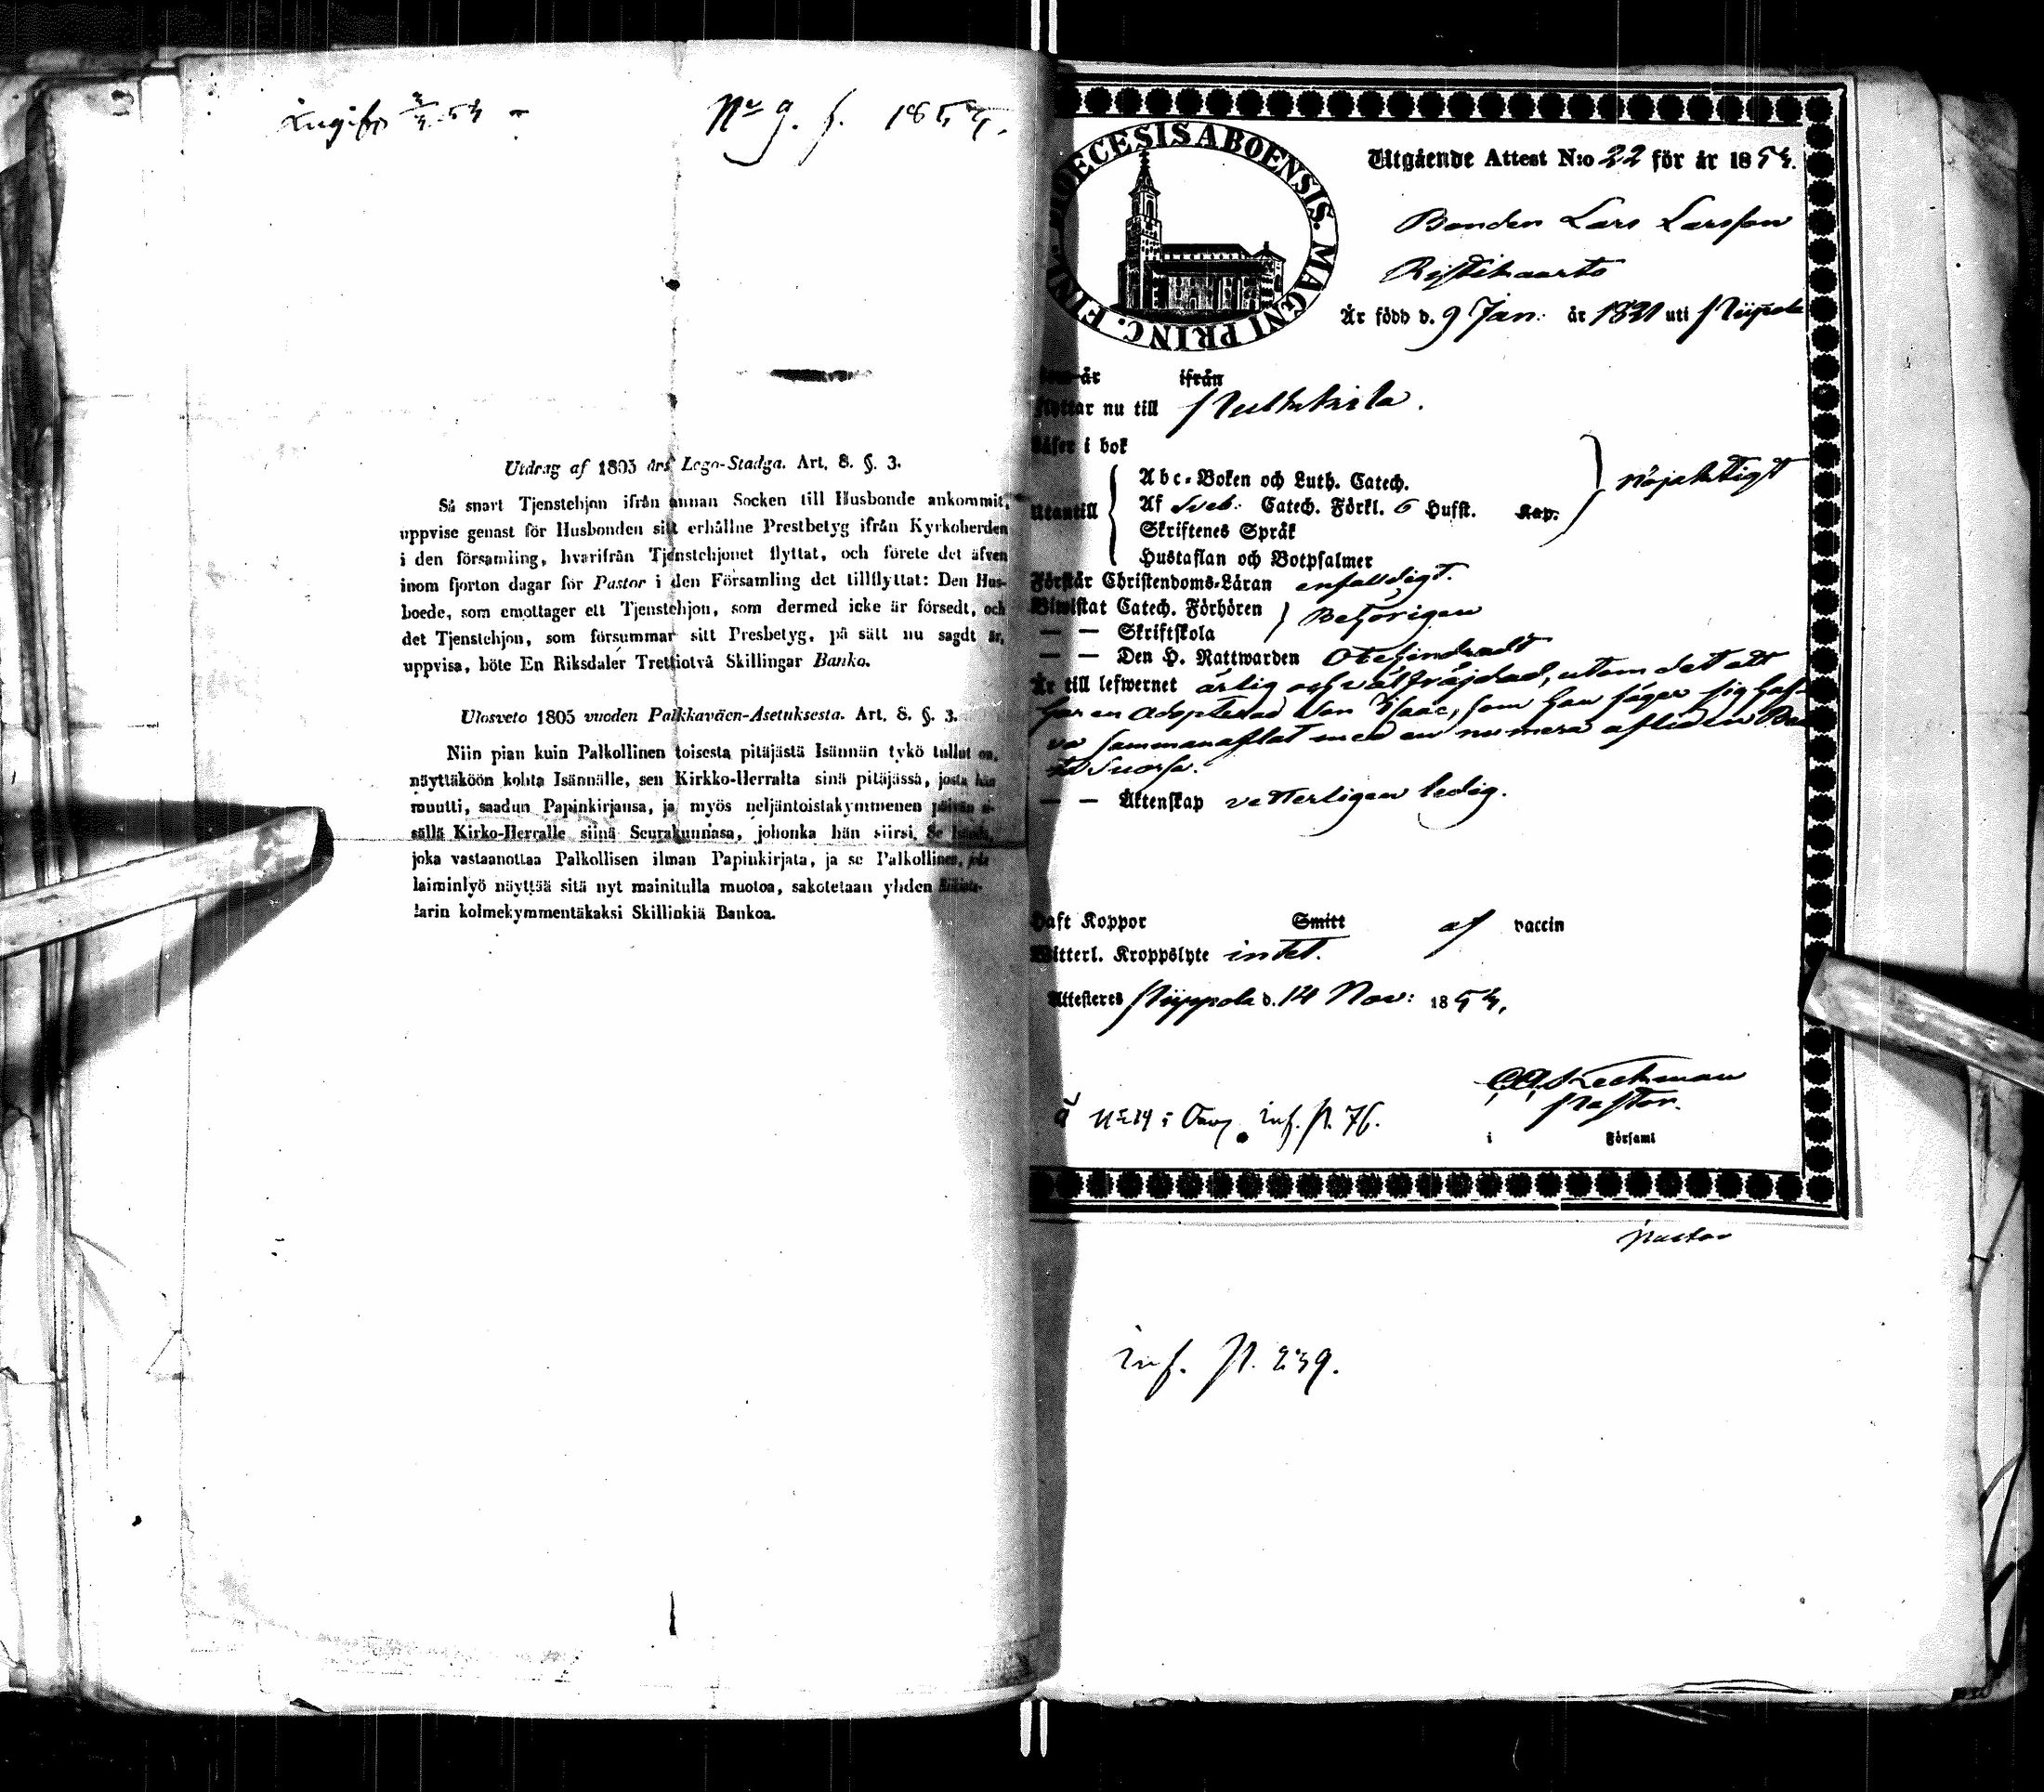 Nr 9. f. 1854.
Utdrag af 1805 års Lego-Stadga. Art. 8. §. 3.
Så snart Tjenstehjon ifrån annan Socken till Husbonde ankommit,
uppvise genast för Husbonden sitt erhållne Prestbetyg ifrån Kyrkoherden
i den församling, hvarifrån Tjenstehjonet flyttat, och förete det äfven
inom fjorton dagar för Pastor i den Församling det tillflyttat: Den Hus-
boede, som emottager ett Tjenstehjon, som dermed icke är försedt, och
det Tjenstehjon, som försummar sitt Presbetyg, på sätt nu sagdt är,
uppvisa, böte En Riksdaler Trettiotvå Skillingar Banko.
Ulosveto 1805 vuoden Palkkaväen-Asetuksesta. Art. 8. §. 3.
Niin pian kuin Palkollinen toisesta pitäjästä Isännän tykö tullut on,
näyttäköön kohta Isännälle, sen Kirkko-Herralta sinä pitäjässä, josta hän
muutti, saadun Papinkirjansa, ja myös neljäntoistakymmenen päivän si-
sällä Kirko-Herralle siinä Seurakunnasa, johonka hän siirsi. Se Isäntä,
joka vastaanottaa Palkollisen ilman Papinkirjata, ja se Palkollinen, joka
laiminlyö näyttää sitä nyt mainitulla muotoa, sakotetaan yhden Riksita-
larin kolmekymmentäkaksi Skillinkiä Bankoa.
DIOECESIS ABOENSIS. MAGNI PRINC. FINL.
Utgående Attest N:o 22 för år 1854.
Bonden Lars Larsson
Ristikaarto
Är född d. 9 Jan: år 1821 uti
som är ifrån
Flyttar nu till
Läser i bok
Utantill
Abc-Boken och Luth. Catech.
nöjaktigt
Af Sveb. Catech. Förkl. 6 Hufst. Kap.
Skriftenes Språk
Hustaflan och Botpsalmer
Förstår Christendoms-Läran enfaldigt.
Biwistat Catech. Förhören
Behörigen
— — Skriftskola
— — Den H. Nattwarden Obehindradt
Är till lefwernet ärlig och välfräjdad, utom det att
han en adopterad son Isaac, som han säger sig haf-
va sammanaflat med en numera afliden
— — Äktenskap vetterligen ledig.
Haft Koppor Smitt af vaccin
Witterl. Kroppslyte intet.
Attesteres d. 14 Nov: 1854.
Pastor.
i Församl
Inf. p. 76.
Pastor
Inf. p. 239.